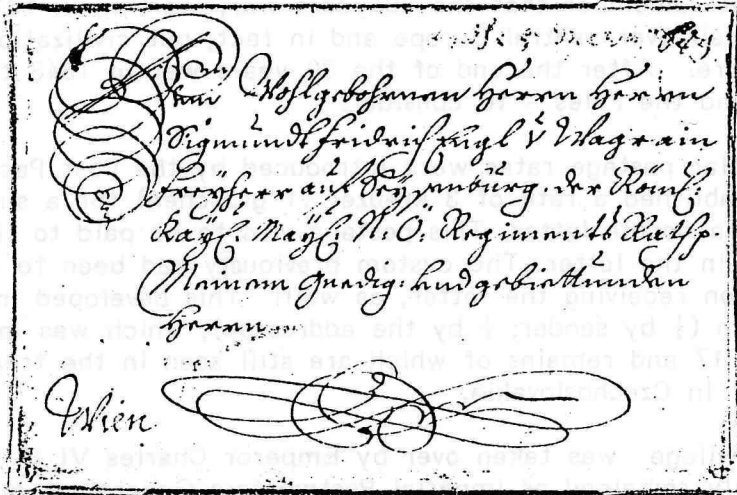 Dem Wohlgebohrnen Herrn Herrn
Sigmundt Fridrich Engl v Wagrain
Freyherr auf Seysenburg der Röm:
Kayß: Mayß: N: Ö: Regiments Rath
Meinem Gnedig: Und gebiettunden
Herrn
Wien